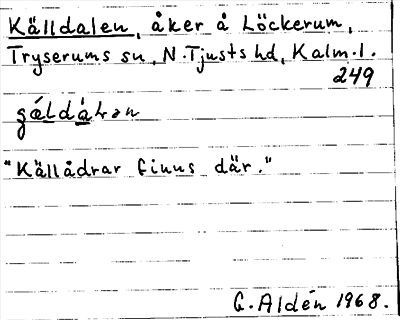 Källdalen, åker å Löckerum,
Tryserums sn, N. Tjusts hd, Kalm. l.
249
"Källådrar finns där."
G. Aldén 1968.